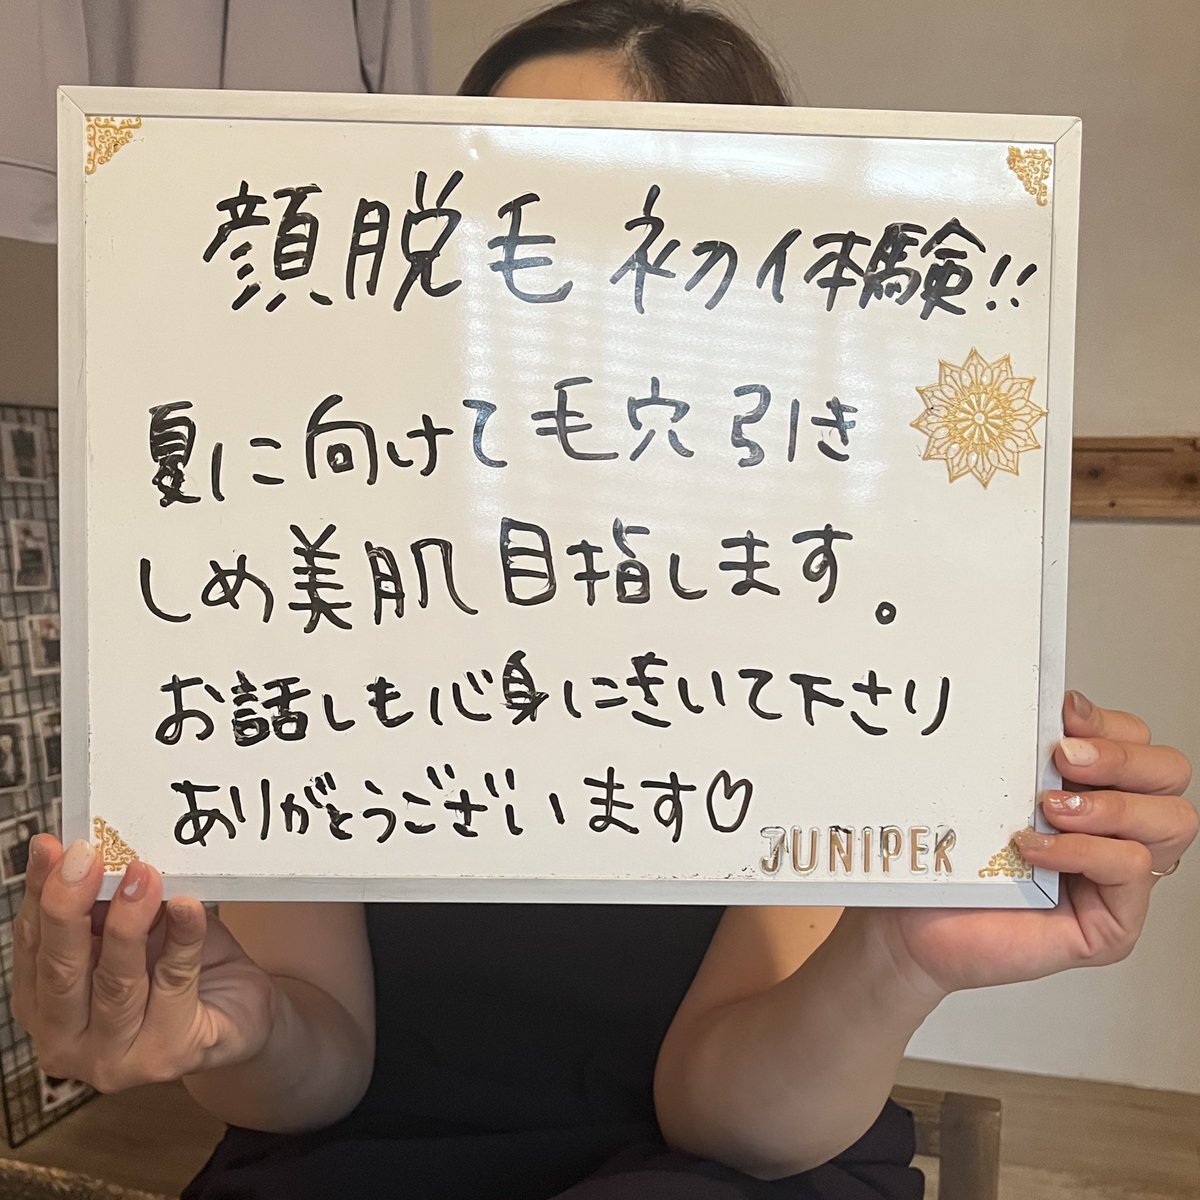 顔脱毛 初体験!!
夏に向けて毛穴引き
しめ美肌目指します。
お話しも心身にきいて下さり
ありがとうございます♡
JUNIPER